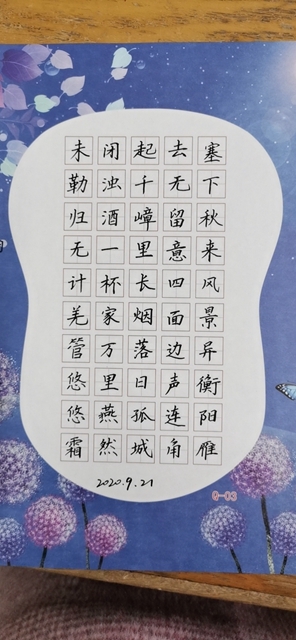 塞下秋来风景异衡阳雁
去无留意四面边声连角
起千嶂里长烟落日孤城
闭浊酒一杯家万里燕然
未勒归无计羌管悠悠霜
2020.9.21